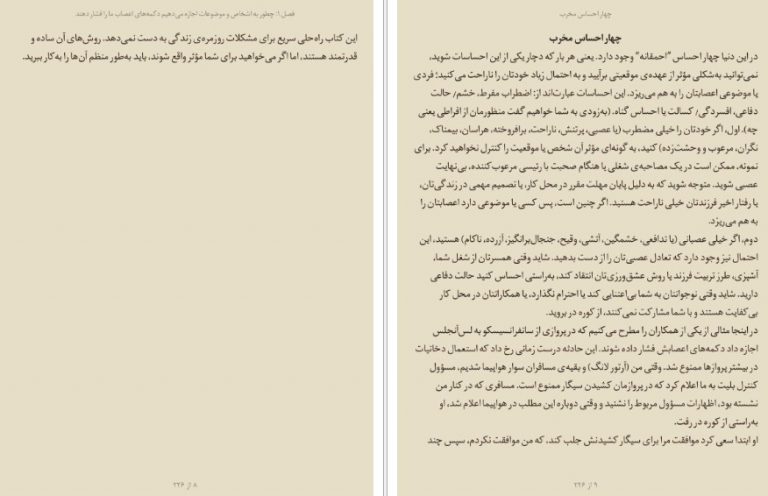 فصل ۱: چطور به اشخاص و موضوعات اجازه می‌دهیم دکمه‌های اعصاب ما را فشار دهند
این کتاب راه‌حلی سریع برای مشکلات روزمره‌ی زندگی به دست نمی‌دهد. روش‌های آن ساده و
قدرتمند هستند، اما اگر می‌خواهید برای شما مؤثر واقع شوند، باید به‌طور منظم آن‌ها را به‌کار ببرید.
۸ از ۲۲۶
چهار احساس مخرب
چهار احساس مخرب
در این دنیا چهار احساس "احمقانه" وجود دارد. یعنی هر بار که دچار یکی از این احساسات شوید،
نمی‌توانید به‌شکلی مؤثر از عهده‌ی موقعیتی برآیید و به احتمال زیاد خودتان را ناراحت می‌کنید؛ فردی
یا موضوعی اعصابتان را به هم می‌ریزد. این احساسات عبارت‌اند از: اضطراب مفرط، خشم/ حالت
دفاعی، افسردگی/ کسالت یا احساس گناه. (به‌زودی به شما خواهیم گفت منظورمان از افراطی یعنی
چه). اول، اگر خودتان را خیلی مضطرب (یا عصبی، پرتنش، ناراحت، برافروخته، هراسان، بیمناک،
نگران، مرعوب و وحشت‌زده) کنید، به گونه‌ای مؤثر آن شخص یا موقعیت را کنترل نخواهید کرد. برای
نمونه، ممکن است در یک مصاحبه‌ی شغلی یا هنگام صحبت با رئیسی مرعوب‌کننده، بی‌نهایت
عصبی شوید. متوجه شوید که به دلیل پایان مهلت مقرر در محل کار، یا تصمیم مهمی در زندگی‌تان،
یا رفتار اخیر فرزندتان خیلی ناراحت هستید. اگر چنین است، پس کسی یا موضوعی دارد اعصابتان را
به هم می‌ریزد.
دوم، اگر خیلی عصبانی (یا تدافعی، خشمگین، آتشی، وقیح، جنجال‌برانگیز، آزرده، ناکام) هستید، این
احتمال نیز وجود دارد که تعادل عصبی‌تان را از دست بدهید. شاید وقتی همسرتان از شغل شما،
آشپزی، طرز تربیت فرزند یا روش عشق‌ورزی‌تان انتقاد کند، به‌راستی احساس کنید حالت دفاعی
دارید. شاید وقتی نوجوانتان به شما بی‌اعتنایی کند یا احترام نگذارد، یا همکارانتان در محل کار
بی‌کفایت هستند و با شما مشارکت نمی‌کنند، از کوره در بروید.
در اینجا مثالی از یکی از همکاران را مطرح می‌کنیم که در پروازی از سانفرانسیسکو به لس‌آنجلس
اجازه داد دکمه‌های اعصابش فشار داده شوند. این حادثه درست زمانی رخ داد که استعمال دخانیات
در بیشتر پروازها ممنوع شد. وقتی من (آرتور لانگ) و بقیه‌ی مسافران سوار هواپیما شدیم، مسؤول
کنترل بلیت به ما اعلام کرد که در پروازمان کشیدن سیگار ممنوع است. مسافری که در کنار من
نشسته بود، اظهارات مسؤول مربوط را نشنید و وقتی دوباره این مطلب در هواپیما اعلام شد، او
به‌راستی از کوره در رفت.
او ابتدا سعی کرد موافقت مرا برای سیگار کشیدنش جلب کند، که من موافقت نکردم، سپس چند
۹ از ۲۲۶